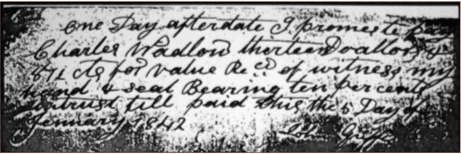 One Day after date I promes to pay
Charles Wadlow thirteen dollars &
87½ cts for value Recd of witness my
hand & seal Bearing ten per cent
intrust till paid this the 6 Day of
Jennuary 1842